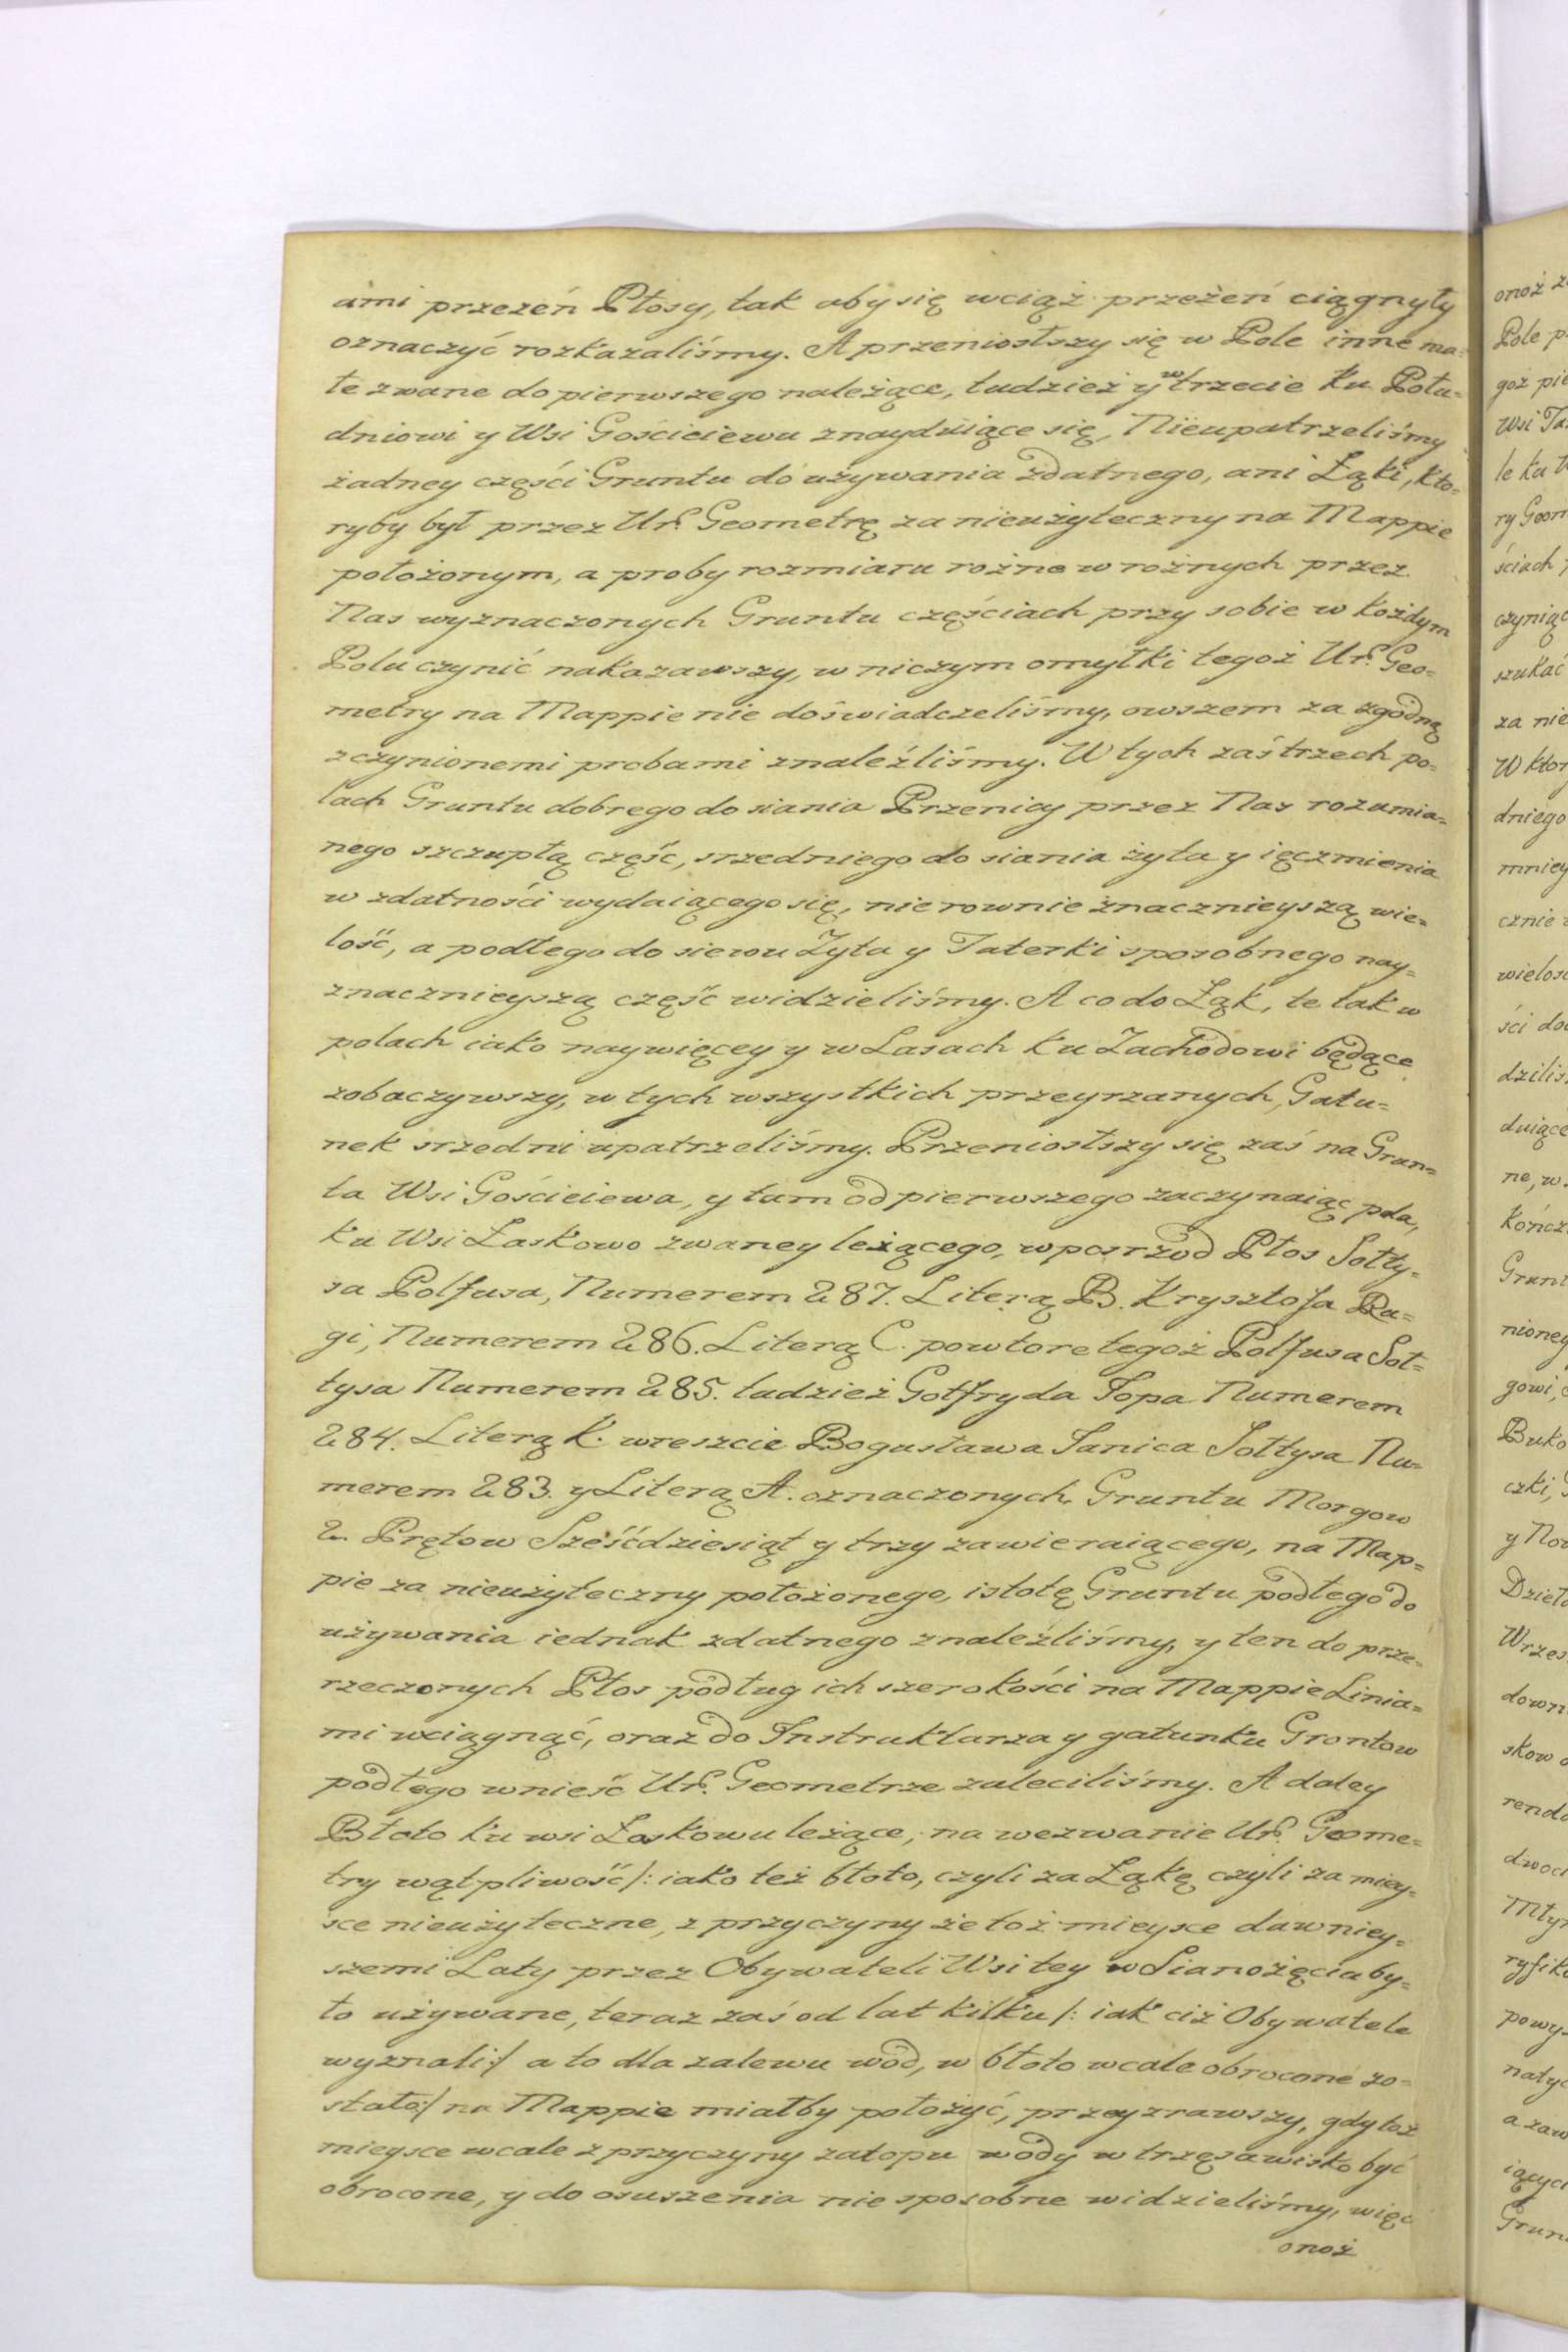 ami przezeń Płosy, tak aby się wciąż przezeń ciągnyły
oznaczyć rozkazaliśmy. A przeniosłszy się w Pole inne ma=
łe zwane do pierwszego należące, tudzież y w trzecie ku Połu=
dniowi y Wsi Gościeiewu znayduiące się, Nieupatrzeliśmy
żadney części Gruntu do używania zdatnego, ani Łąki, kto=
ryby był przez Ur. Geometrę za nieużyteczny na Mappie
położonym, a proby rozmiaru rożne w rożnych przez
Nas wyznaczonych Gruntu częściach przy sobie w każdym
Polu czynić nakazawszy, w niczym omyłki tegoż Ur. Geo=
metry na Mappie nie doświadczeliśmy, owszem za zgodną
z czynionemi probami znaleźliśmy. W tych zaś trzech po=
lach Gruntu dobrego do siania Przenicy przez Nas rozumia=
nego szczupłą część, srzedniego do siania żyta y ięczmienia
w zdatności wydaiącego się, nierownie znacznieyszą wie=
lość, a podłego do siewu Żyta y Taterki sposobnego nay=
znacznieyszą część widzieliśmy. A co do Łąk, te tak w
polach iako naywięcey y w Lasach ku Zachodowi będące
zobaczywszy, w tych wszystkich przeyrzanych, Gatu=
nek srzedni upatrzeliśmy. Przeniosłszy się zaś na Grun=
ta Wsi Gościeiewa, y tam od pierwszego zaczynaiąc pola,
ku Wsi Łaskowo zwaney leżącego, wposrzod Płos Sołty=
sa Polfusa, Numerem 287. Literą B. Krysztofa Ra=
gi, Numerem 286. Literą C. powtore tegoż Polfusa Soł=
tysa Numerem 285. tudzież Gotfryda Sopa Numerem
284. Literą K. wreszcie Bogusława Sanica Sołtysa Nu=
merem 283. y Literą A. oznaczonych Gruntu Morgow
2. Prętow Sześćdziesiąt y trzy zawieraiącego, na Map=
pie za nieużyteczny położonego, istotę Gruntu podłego do
używania iednak zdatnego znaleźliśmy, y ten do prze=
rzeczonych Płos podług ich szerokości na Mappie Linia=
mi wciągnąć, oraz do Instruktarza y gatunku Grontow
podłego wnieść Ur. Geometrze zaleciliśmy. A daley
Błoto ku wsi Łaskowu leżące, na wezwanie Ur. Geome=
try wątpliwość /: iako też błoto, czyli za Łąkę czyli za miey=
sce nieużyteczne, z przyczyny że toż mieysce dawniey=
szemi Laty przez Obywateli Wsi tey w Sianożęcia by=
ło używane, teraz zaś od lat kilku /: iak ciż Obywatele
wyznali :/ a to dla zalewu wód, w błoto wcale obrocone zo=
stało :/ na Mappie miałby położyć, przeyzrawszy, gdy toż
mieysce wcale z przyczyny zatopu wody w trzęsawisko być
obrocone, y do osuszenia nie sposobne widzieliśmy, więc
onoż